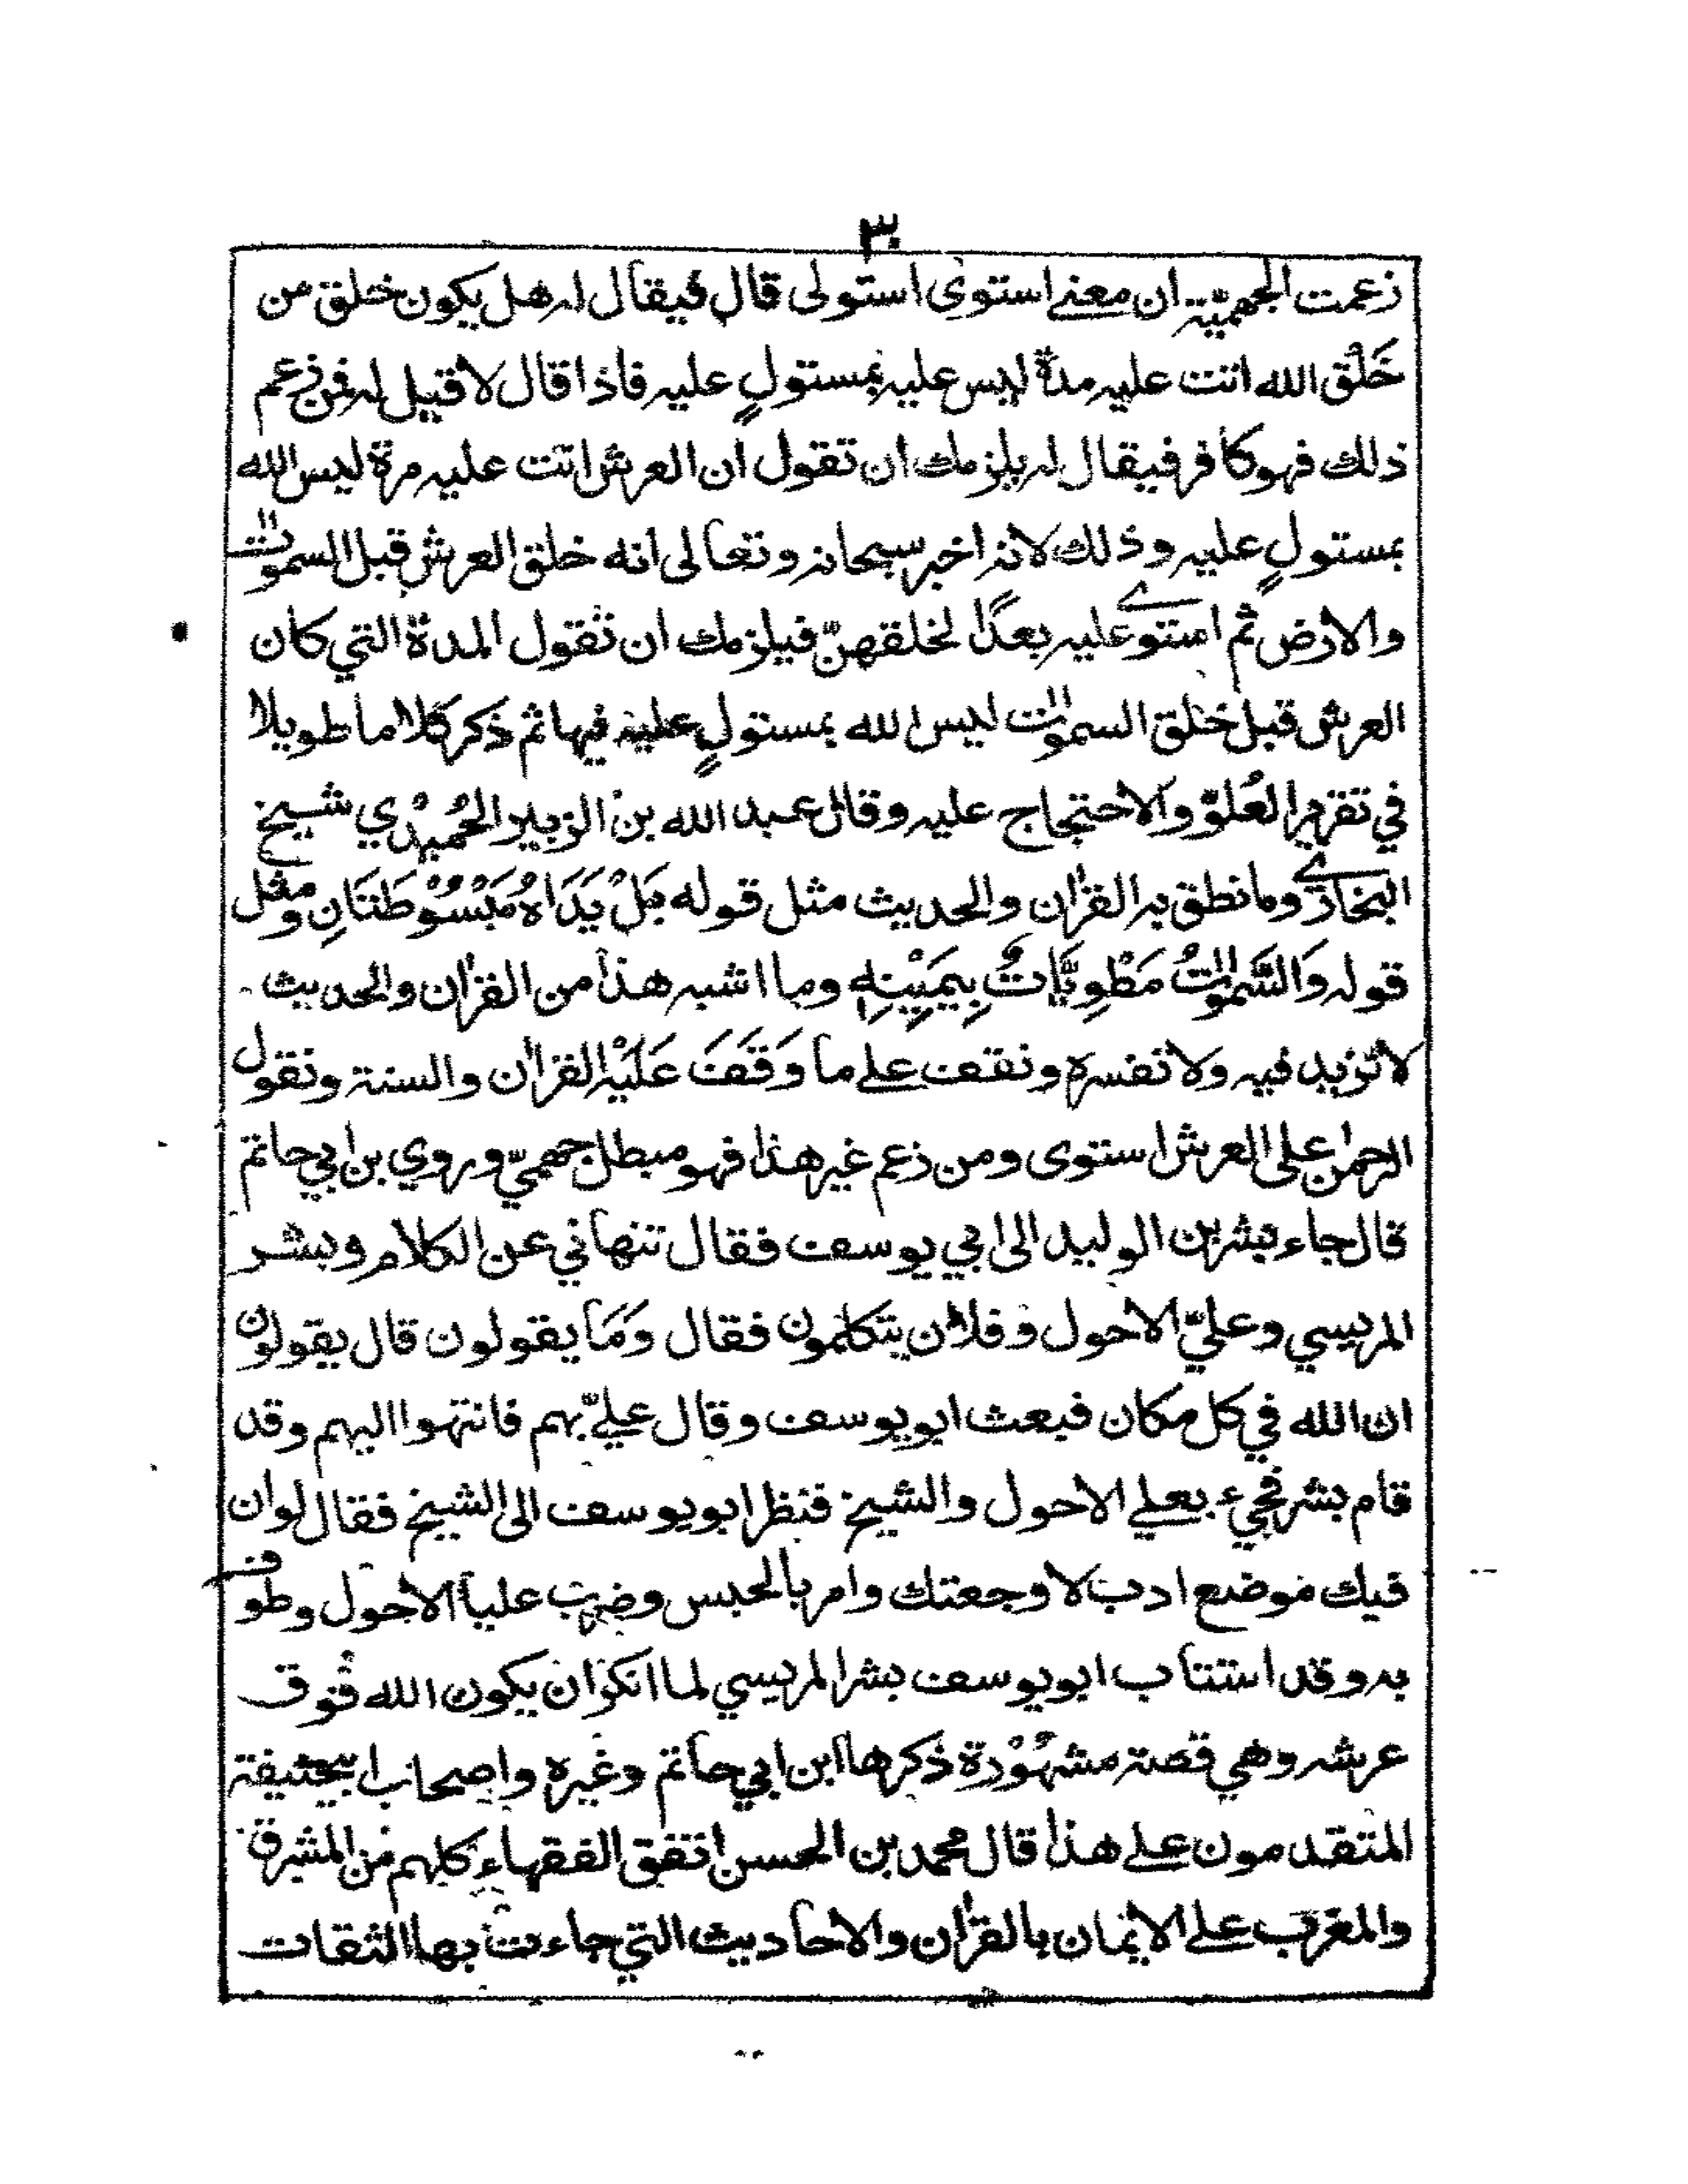 ٣٠
زعمت الجهميّة ان معنے استوى استولى قال فيقال له هل يكون خلق من
خَلْق الله اتت عليه مدة ليس عليه بمستولٍ عليه فاذا قال لا قيل له فمن زعم
ذلك فهو كافر فيقال له يلزمك ان تقول ان العرش اتت عليه مرة ليس الله
بمستولٍ عليه وذلك لانه اخبر سبحانه وتعالى انه خلق العرش قبل السموٰت
والارض ثم استوے عليه بعد لخلقهنّ فيلزمك ان تقول المدة التي كان
العرش قبل خلق السموٰت ليس الله بمستولٍ عليه فيها ثم ذكر كلاما طويلا
في تقرير العُلوّ والاحتجاج عليه وقال عبد الله بن الزبير الحُميْدي شيخ
البخارے وما نطق به القرٰان والحديث مثل قوله بَلْ يَدَاهُ مَبْسُوْطَتَانِ ومثل
قوله وَالسَّمٰوٰتُ مَطْوِيَّاتٌ بِيَمِيْنِهٖ وما اشبه هذا من القرٰان والحديث
لا نزيد فيه ولا نفسره ونقف علے ما وَقَفَ عَلَيْه القرٰان والسنة ونقول
الرحمٰن على العرش استوى ومن زعم غير هذا فهو مبطل جهميّ وروي بن ابي حاتم
قال جاء بشر بن الوليد الى ابي يوسف فقال تنهاني عن الكلام وبشر
المريسي وعليّ الاحول وفلان يتكلمون فقال وَمَا يقولون قال يقولون
ان الله في كل مكان فبعث ابو يوسف وقال عليّ بهم فانتهوا اليهم وقد
قام بشر فجيء بعلي الاحول والشيخ فنظر ابو يوسف الى الشيخ فقال لو ان
فيك موضع ادب لاوجعتك وامر بالحبس وضرب عليا الاحول وطوف
به وقد استتاب ابو يوسف بشر المريسي لما انكر ان يكون الله فوق
عرشه وهي قصة مشهُوْرة ذكرها ابن ابي حاتم وغيره واصحاب ابيحنيفة
المتقدمون علے هذا قال محمد بن الحسن اتفق الفقهاء كلهم من المشرق
والمغرب علے الايمان بالقرٰان والاحاديث التي جاءت بها الثقات